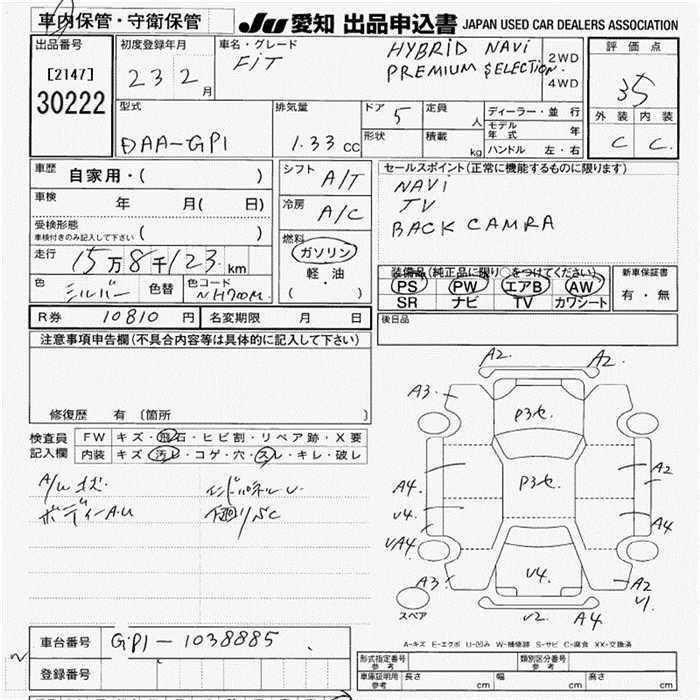 車内保管・守衛保管
JU 愛知 出品申込書 JAPAN USED CAR DEALERS ASSOCIATION
出品番号
[2147]
30222
初度登録年月
23 2月
車名・グレード
FiT
HYBRID NAVi
PREMIUM SELECTION.
2WD
4WD
評価点
35
外装 内装
C C.
型式
DAA-GP1
排気量
1.33 CC
ドア 5
形状
定員 人
積載 kg
ディーラー・並行
モデル年式 年
ハンドル 左・右
車歴
自家用・( )
車検 年 月( 日)
受検形態
車検付きのみ記入して下さい ( )
走行
15万8千123km
色 シルバー 色替
色コード NH700M.
シフト A/T
冷房 A/C
燃料
ガソリン
軽・油
( )
セールスポイント(正常に機能するものに限ります)
NAVi
TV
BACK CAMRA
装備品(純正品に限り○をつけてください)
PS PW エアB AW
SR ナビ TV カワシート
新車保証書
有・無
後日品
R券 10810 円
名変期限 月 日
注意事項申告欄(不具合内容等は具体的に記入して下さい)
修復歴 有 〔箇所 〕
検査員記入欄
FW キズ・飛石・ヒビ割・リペア跡・X要
内装 キズ・汚レ・コゲ・穴・スレ・キレ・破レ
A2. A2.
A3.
P3セ.
P3セ.
A4. A2
V4. A4
VA4
A3. V4. A2
V1.
スペア
V2. A4
A-キズ E-エクボ U-凹み W-補修跡 S-サビ C-腐食 XX-交換済
車台番号 GP1-1038885
登録番号
形式指定番号 参考
類別区分番号 参考
車庫証明用 参考
長さ cm 幅 cm 高さ cm